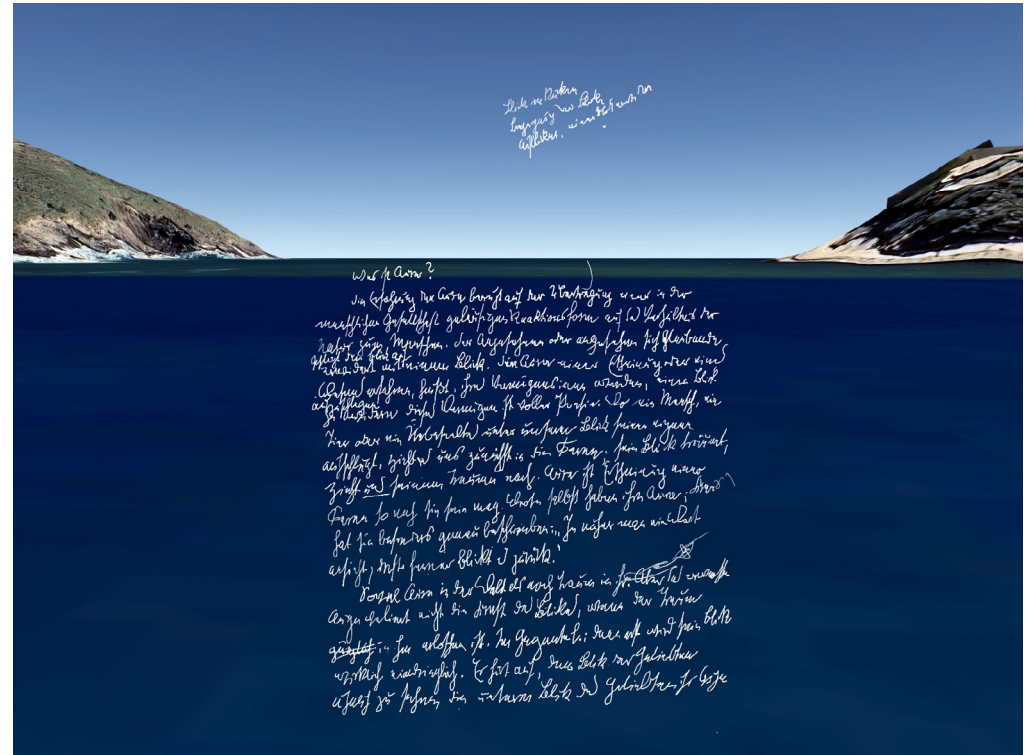 Blick im Rücken
Begegnung der Blicke
Aufblicken, einem Blick antworten
Was ist Aura?
Die Erfahrung der Aura beruht auf der Übertragung einer in der
menschlichen Gesellschaft geläufigen Reaktionsform auf das Verhältnis der
Natur zum Menschen. Der Angesehene oder angesehen sich Glaubende
schlägt den Blick auf
erwidert mit einem Blick. Die Aura einer Erscheinung oder eines
Wesens erfahren, heißt, ihres Vermögens inne werden, einen Blick
aufzuschlagen
zu erwidern. Dieses Vermögen ist voller Poesie. Wo ein Mensch, ein
Tier oder ein Unbeseeltes unter unserm Blick seinen eignen
aufschlägt, zieht es uns zunächst in die Ferne; sein Blick träumt,
zieht uns seinem Traume nach. Aura ist Erscheinung einer
Ferne so nah sie sein mag. Worte selbst haben ihre Aura;
hat sie besonders genau beschrieben: „Je näher man ein Wort
ansieht, desto ferner blickt es zurück."
Soviel Aura in der Welt als noch Traum in ihr. Aber das erwachte
Auge verlernt nicht die Kraft des Blicks, wenn der Traum
gänzlich in ihm erloschen ist. Im Gegenteil: dann erst wird sein Blick
wirklich eindringlich. Er hört auf, dem Blick der Geliebten
ähnlich zu sehen, die unterm Blick des Geliebten ihr Auge